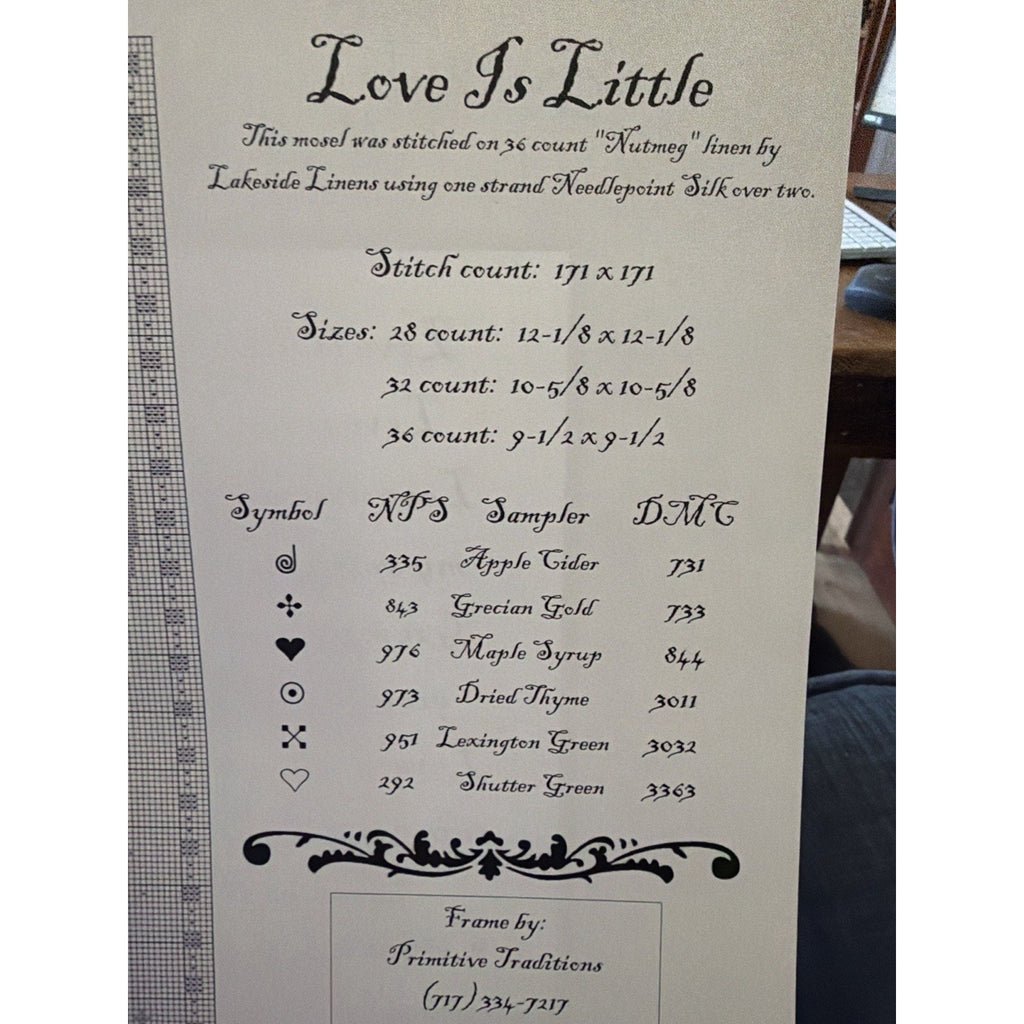 Love Is Little
This mosel was stitched on 36 count "Nutmeg" linen by
Lakeside Linens using one strand Needlepoint Silk over two.
Stitch count: 171 x 171
Sizes: 28 count: 12-1/8 x 12-1/8
32 count: 10-5/8 x 10-5/8
36 count: 9-1/2 x 9-1/2
Symbol NPS Sampler DMC
335 Apple Cider 731
843 Grecian Gold 733
976 Maple Syrup 844
973 Dried Thyme 3011
951 Lexington Green 3032
292 Shutter Green 3363
Frame by:
Primitive Traditions
(717) 334-7217